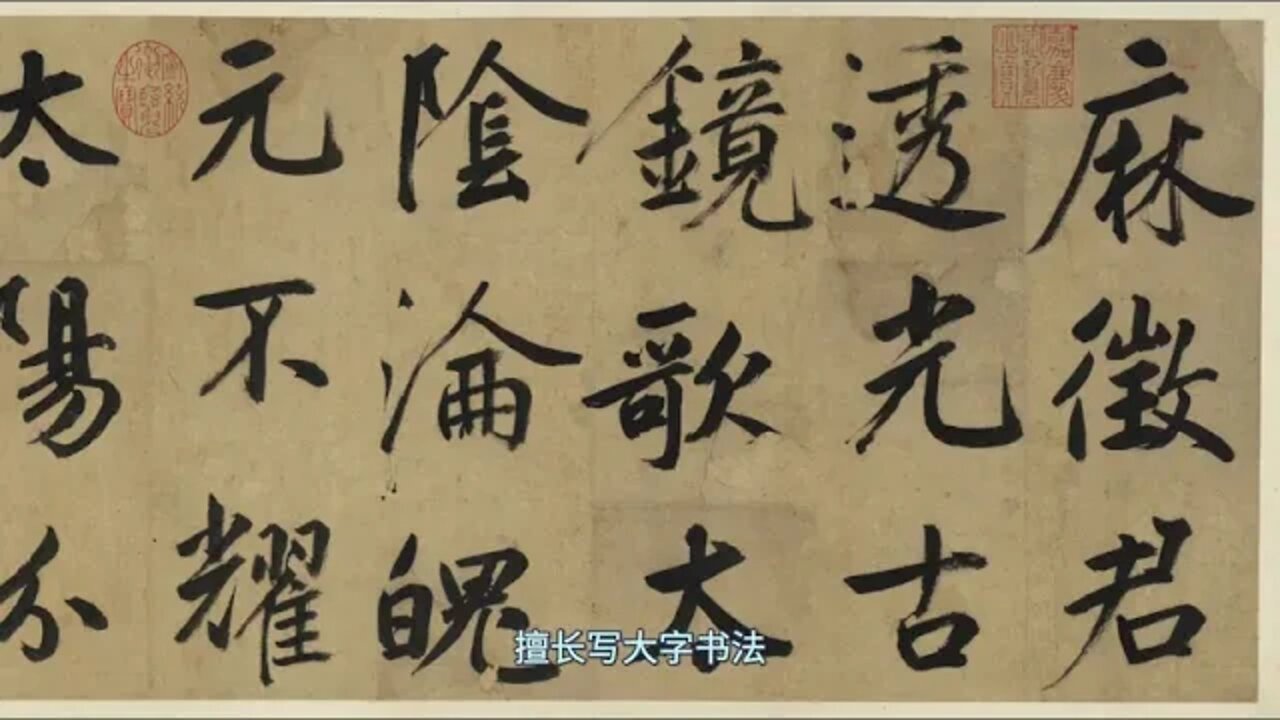 麻徵君
透光古
鏡歌太
陰淪魄
元不耀
太陽分
擅长写大字书法